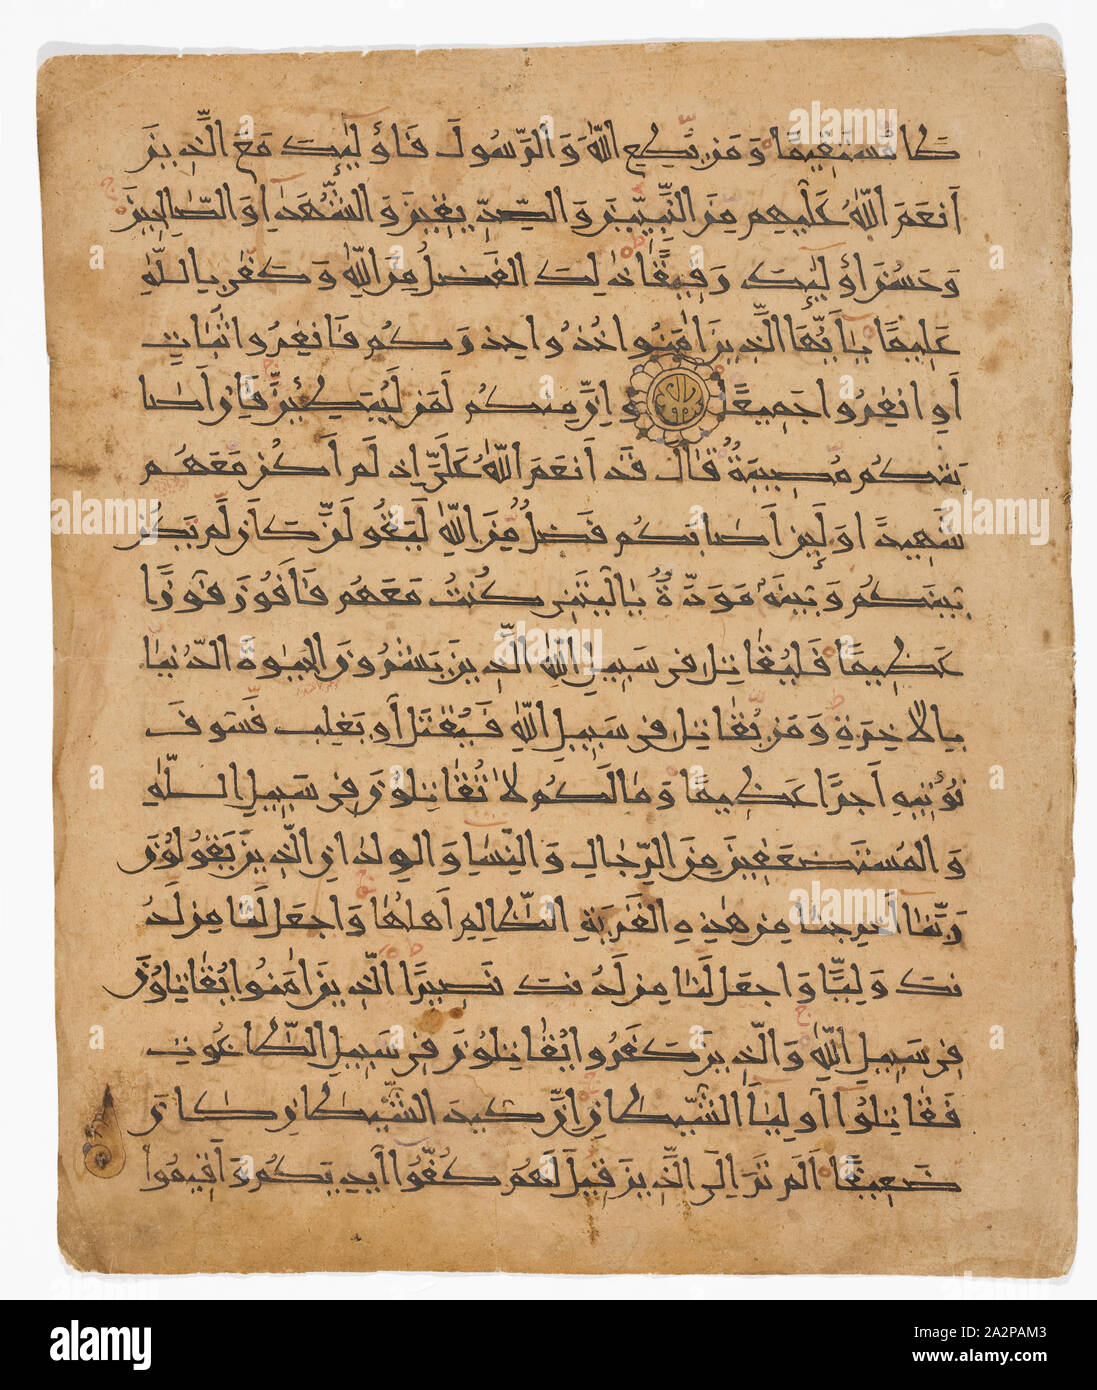 طا مستقيما ومن يطع الله والرسول فأولئك مع الذين
أنعم الله عليهم من النبيين والصديقين والشهداء والصالحين
وحسن أولئك رفيقا ذلك الفضل من الله وكفى بالله
عليما يا أيها الذين آمنوا خذوا حذركم فانفروا ثبات
أو انفروا جميعا وإن منكم لمن ليبطئن فإن أصا
بتكم مصيبة قال قد أنعم الله علي إذ لم أكن معهم
شهيدا ولئن أصابكم فضل من الله ليقولن كأن لم يكن
بينكم وبينه مودة يا ليتني كنت معهم فأفوز فوزا
عظيما فليقاتل في سبيل الله الذين يشرون الحيوة الدنيا
بالآخرة ومن يقاتل في سبيل الله فيقتل أو يغلب فسوف
نؤتيه أجرا عظيما وما لكم لا تقاتلون في سبيل الله
والمستضعفين من الرجال والنساء والولدان الذين يقولون
ربنا أخرجنا من هذه القرية الظالم أهلها واجعل لنا من لد
نك وليا واجعل لنا من لدنك نصيرا الذين آمنوا يقاتلون
في سبيل الله والذين كفروا يقاتلون في سبيل الطاغوت
فقاتلوا أولياء الشيطان إن كيد الشيطان كان
ضعيفا ألم تر إلى الذين قيل لهم كفوا أيديكم وأقيموا
alamy
Image ID: 2A2PAM3
www.alamy.com